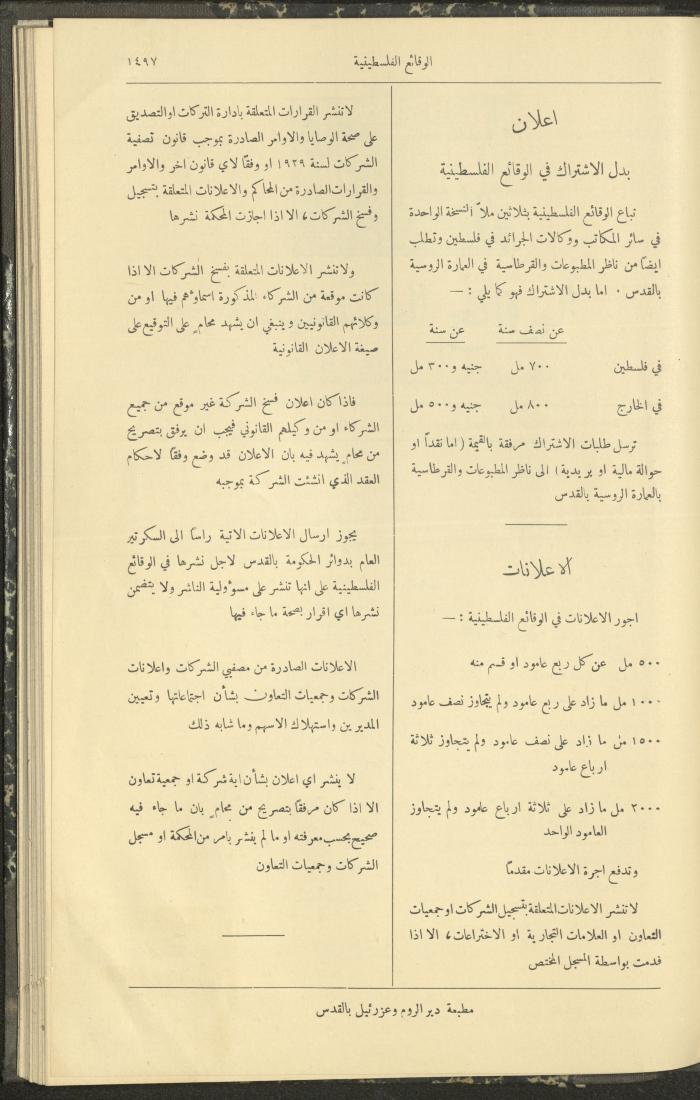 الوقائع الفلسطينية
١٤٩٧
اعلان
بدل الاشتراك في الوقائع الفلسطينية
تباع الوقائع الفلسطينية بثلاثين ملاً النسخة الواحدة
في سائر المكاتب ووكالات الجرائد في فلسطين وتطلب
ايضاً من ناظر المطبوعات والقرطاسية في العمارة الروسية
بالقدس ٠ اما بدل الاشتراك فهو كما يلي : —
عن نصف سنة عن سنة
في فلسطين ٧٠٠ مل جنيه و٣٠٠ مل
في الخارج ٨٠٠ مل جنيه و٥٠٠ مل
ترسل طلبات الاشتراك مرفقة بالقيمة ( اما نقداً او
حوالة مالية او بريدية ) الى ناظر المطبوعات والقرطاسية
بالعمارة الروسية بالقدس
الاعلانات
اجور الاعلانات في الوقائع الفلسطينية : —
٥٠٠ مل عن كل ربع عامود او قسم منه
١٠٠٠ مل ما زاد على ربع عامود ولم يتجاوز نصف عامود
١٥٠٠ مل ما زاد على نصف عامود ولم يتجاوز ثلاثة
ارباع عامود
٢٠٠٠ مل ما زاد على ثلاثة ارباع عامود ولم يتجاوز
العامود الواحد
وتدفع اجرة الاعلانات مقدماً
لا تنشر الاعلانات المتعلقة بتسجيل الشركات او جمعيات
التعاون او العلامات التجارية او الاختراعات، الا اذا
قدمت بواسطة المسجل المختص
لا تنشر القرارات المتعلقة بادارة التركات او التصديق
على صحة الوصايا والاوامر الصادرة بموجب قانون تصفية
الشركات لسنة ١٩٢٩ او وفقاً لاي قانون اخر والاوامر
والقرارات الصادرة من المحاكم والاعلانات المتعلقة بتسجيل
وفسخ الشركات، الا اذا اجازت المحكمة نشرها
ولا تنشر الاعلانات المتعلقة بفسخ الشركات الا اذا
كانت موقعة من الشركاء المذكورة اسماؤهم فيها او من
وكلائهم القانونيين وينبغي ان يشهد محامٍ على التوقيع على
صيغة الاعلان القانونية
فاذا كان اعلان فسخ الشركة غير موقع من جميع
الشركاء او من وكيلهم القانوني فيجب ان يرفق بتصريح
من محامٍ يشهد فيه بان الاعلان قد وضع وفقاً لاحكام
العقد الذي انشئت الشركة بموجبه
يجوز ارسال الاعلانات الاتية راساً الى السكرتير
العام بدوائر الحكومة بالقدس لاجل نشرها في الوقائع
الفلسطينية على انها تنشر على مسوءولية الناشر ولا يتضمن
نشرها اي اقرار بصحة ما جاء فيها
الاعلانات الصادرة من مصفيي الشركات واعلانات
الشركات وجمعيات التعاون بشأن اجتماعاتها وتعيين
المديرين واستهلاك الاسهم وما شابه ذلك
لا ينشر اي اعلان بشأن اية شركة او جمعية تعاون
الا اذا كان مرفقاً بتصريح من محامٍ بان ما جاء فيه
صحيح بحسب معرفته او ما لم ينشر بامر من المحكمة او مسجل
الشركات وجمعيات التعاون
مطبعة دير الروم وعزرئيل بالقدس